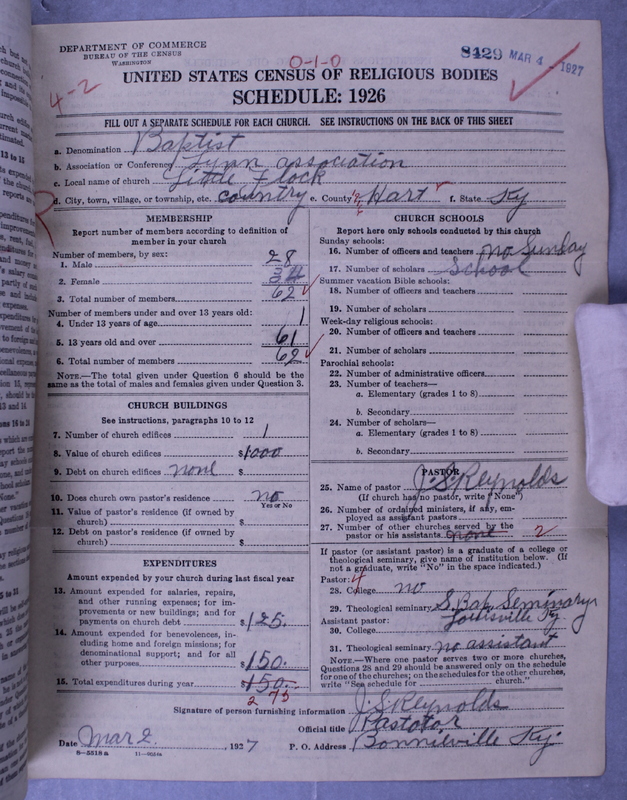 DEPARTMENT OF COMMERCE
BUREAU OF THE CENSUS
WASHINGTON
8429 MAR 4 - 1927
0-1-0
4-2
UNITED STATES CENSUS OF RELIGIOUS BODIES
SCHEDULE: 1926
FILL OUT A SEPARATE SCHEDULE FOR EACH CHURCH. SEE INSTRUCTIONS ON THE BACK OF THIS SHEET
a. Denomination Baptist
b. Association or Conference Lynn association
c. Local name of church Little Flock
d. City, town, village, or township, etc. country e. County Hart f. State Ky
MEMBERSHIP
Report number of members according to definition of
member in your church
Number of members, by sex:
1. Male 28
2. Female 34
3. Total number of members 62
Number of members under and over 13 years old:
4. Under 13 years of age 1
5. 13 years old and over 61
6. Total number of members 62
NOTE.—The total given under Question 6 should be the
same as the total of males and females given under Question 3.
CHURCH BUILDINGS
See instructions, paragraphs 10 to 12
7. Number of church edifices 1
8. Value of church edifices $1000
9. Debt on church edifices none $
10. Does church own pastor's residence no
Yes or No
11. Value of pastor's residence (if owned by
church) $
12. Debt on pastor's residence (if owned by
church) $
EXPENDITURES
Amount expended by your church during last fiscal year
13. Amount expended for salaries, repairs,
and other running expenses; for im-
provements or new buildings; and for
payments on church debt $125.
14. Amount expended for benevolences, in-
cluding home and foreign missions; for
denominational support; and for all
other purposes $150.
15. Total expenditures during year $150.
275
CHURCH SCHOOLS
Report here only schools conducted by this church
Sunday schools:
16. Number of officers and teachers no Sunday
17. Number of scholars School
Summer vacation Bible schools:
18. Number of officers and teachers
19. Number of scholars
Week-day religious schools:
20. Number of officers and teachers
21. Number of scholars
Parochial schools:
22. Number of administrative officers
23. Number of teachers—
a. Elementary (grades 1 to 8)
b. Secondary
24. Number of scholars—
a. Elementary (grades 1 to 8)
b. Secondary
PASTOR
25. Name of pastor J. S. Reynolds
(If church has no pastor, write "None")
26. Number of ordained ministers, if any, em-
ployed as assistant pastors
27. Number of other churches served by the
pastor or his assistants none 2
If pastor (or assistant pastor) is a graduate of a college or
theological seminary, give name of institution below. (If
not a graduate, write "No" in the space indicated.)
Pastor: 4
28. College no
29. Theological seminary S. Bap. Seminary
Assistant pastor: Louisville Ky.
30. College
31. Theological seminary no assistant
NOTE.—Where one pastor serves two or more churches,
Questions 28 and 29 should be answered only on the schedule
for one of the churches; on the schedules for the other churches,
write "See schedule for church."
Signature of person furnishing information J. S. Reynolds
Official title Pastotor
Date Mar 2, 1927 P. O. Address Bonnieville Ky.
8-5518 a